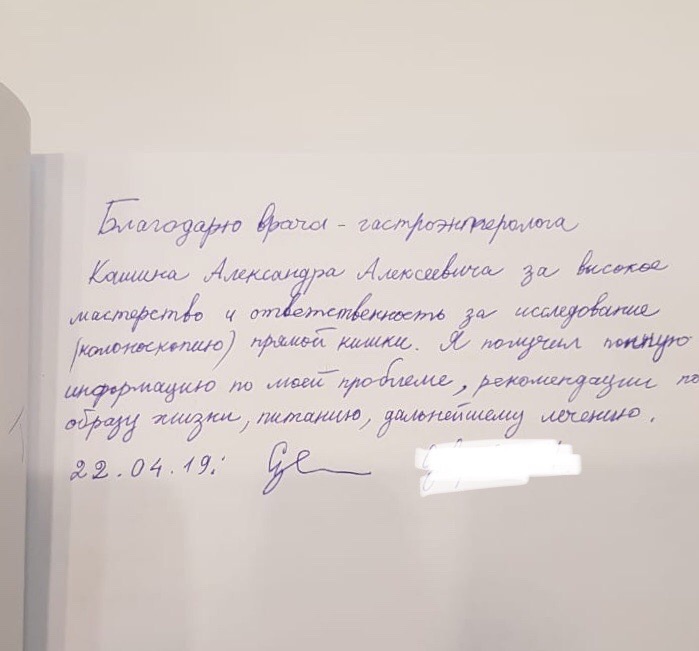 Благодарю врача - гастроэнтеролога
Кашина Александра Алексеевича за высокое
мастерство и ответственность за исследование
(колоноскопию) прямой кишки. Я получил полную
информацию по моей проблеме, рекомендации по
образу жизни, питанию, дальнейшему лечению.
22.04.19г